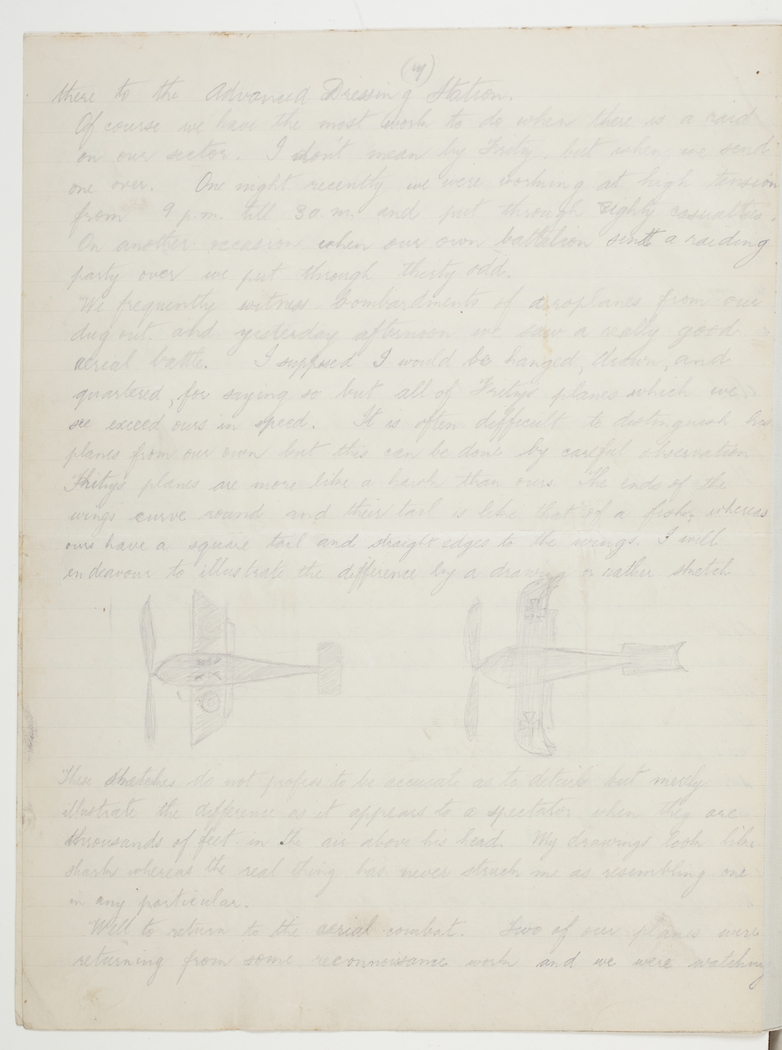 there to the Advanced Dressing Station.
Of course we have the most work to do when there is a raid
on our sector. I don't mean by Fritz, but when we send
one over. One night recently we were working at high tension
from 9 p.m. till 3 a.m. and put through eighty casualties
On another occasion when our own battalion sent a raiding
party over we put through thirty odd.
We frequently witness bombardments of aeroplanes from our
dug out and yesterday afternoon we saw a really good
aerial battle. I supposed I would be hanged, drawn, and
quartered, for saying so but all of Fritzys planes which we
see exceed ours in speed. It is often difficult to distinguish his
planes from our own but this can be done by careful observation
Fritzys planes are more like a than ours. The ends of the
wings curve round and their tail is like that of a fish, whereas
ours have a square tail and straight edges to the wings. I will
endeavour to illustrate the difference by a drawing or rather sketch
These sketches do not profess to be accurate as to details but merely
illustrate the difference as it appears to a spectator when they are
thousands of feet in the air above his head. My drawings look like
sharks whereas the real thing has never struck me as resembling one
in any particular.
Well to return to the aerial combat. Two of our planes were
returning from some reconnoisance work and we were watching